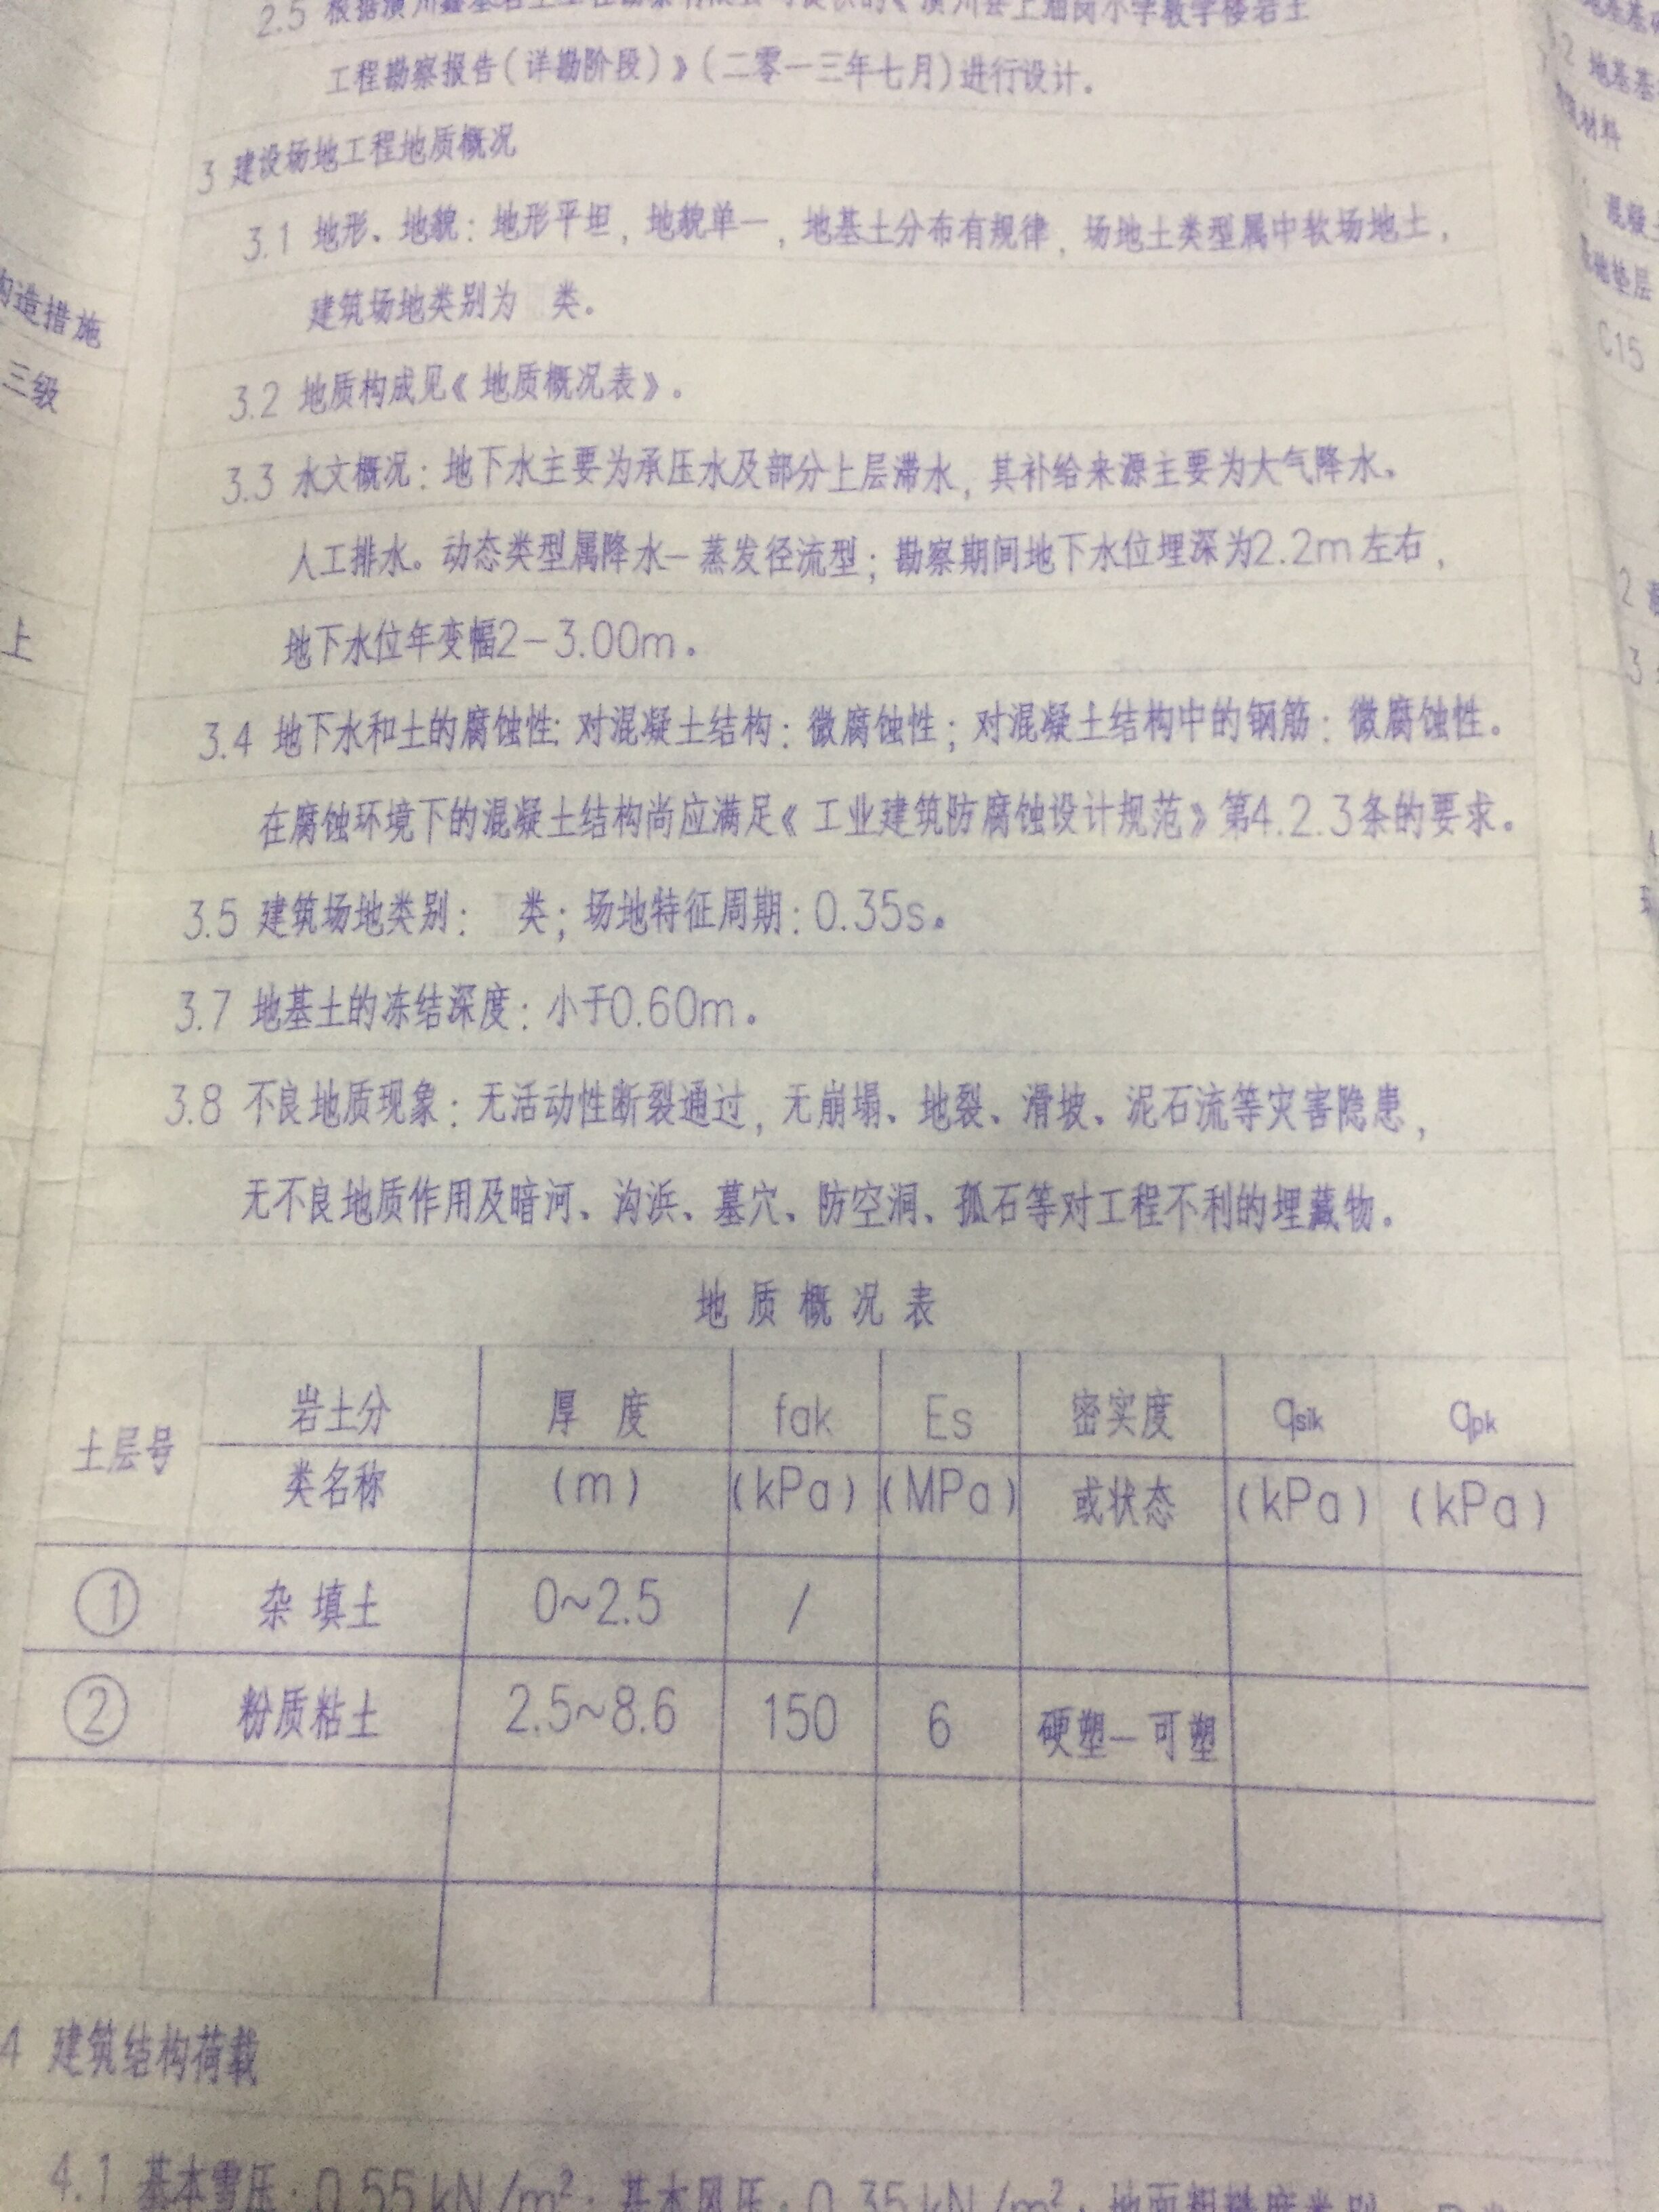 2.5 根据潢川鑫基岩土工程勘察有限公司提供的《潢川县上油岗小学教学楼岩土
工程勘察报告(详勘阶段)》(二零一三年七月)进行设计。
3 建设场地工程地质概况
3.1 地形、地貌:地形平坦,地貌单一,地基土分布有规律,场地土类型属中软场地土,
建筑场地类别为 类。
3.2 地质构成见《地质概况表》。
3.3 水文概况:地下水主要为承压水及部分上层滞水,其补给来源主要为大气降水、
人工排水。动态类型属降水—蒸发径流型;勘察期间地下水位埋深为2.2m左右,
地下水位年变幅2—3.00m。
3.4 地下水和土的腐蚀性:对混凝土结构:微腐蚀性;对混凝土结构中的钢筋:微腐蚀性。
在腐蚀环境下的混凝土结构尚应满足《工业建筑防腐蚀设计规范》第4.2.3条的要求。
3.5 建筑场地类别: 类;场地特征周期:0.35s。
3.7 地基土的冻结深度:小于0.60m。
3.8 不良地质现象:无活动性断裂通过,无崩塌、地裂、滑坡、泥石流等灾害隐患,
无不良地质作用及暗河、沟浜、墓穴、防空洞、孤石等对工程不利的埋藏物。
地质概况表
土层号 岩土分 厚度 fak Es 密实度 qsik qpk
类名称 (m) (kPa) (MPa) 或状态 (kPa) (kPa)
① 杂填土 0~2.5 /
② 粉质粘土 2.5~8.6 150 6 硬塑—可塑
4 建筑结构荷载
4.1 基本雪压:0.55kN/m²;基本风压:0.35kN/m²;地面粗糙度类别
构造措施
三级
上
地基基
材料
混凝土
垫层
C15
2
3